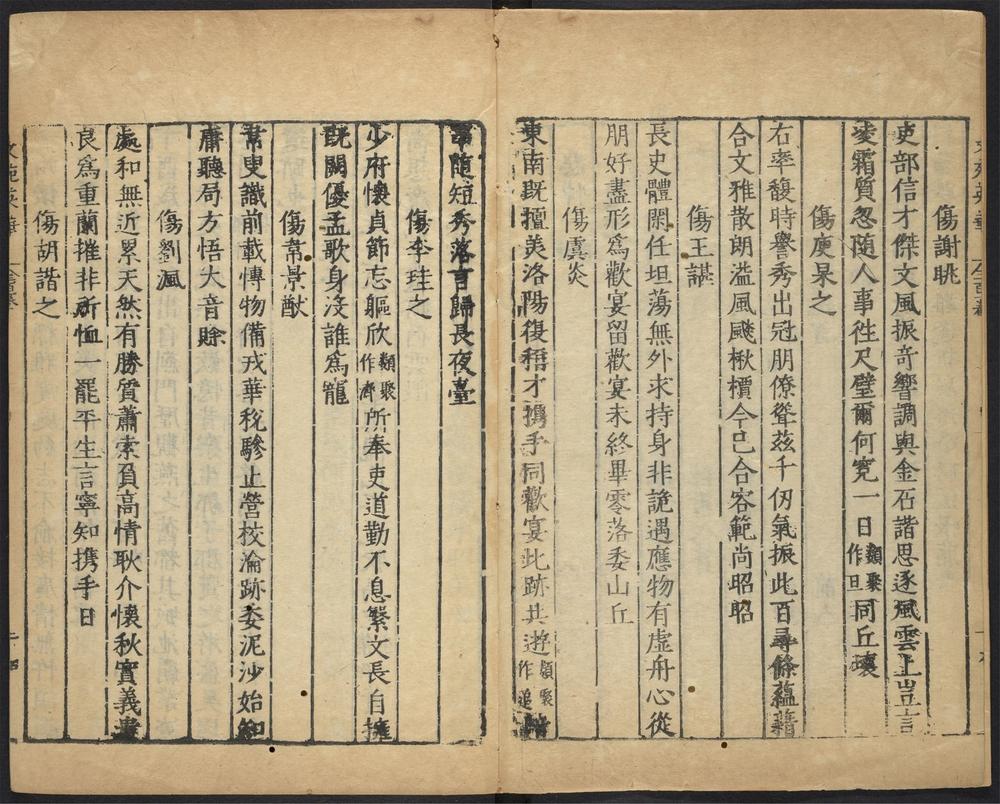 傷謝朓
吏部信才傑文風振竒響調與金石諧思逐風雲上豈言
凌霜質忽随人事徃尺璧爾何寃一日類聚作旦同丘壤
傷庾杲之
右率馥時譽秀出冠朋僚聳茲千仞氣振此百尋條蘊藉
合文雅散朗溢風飈楸檟今已合容範尚昭昭
傷王諶
長史體閑任坦蕩無外求持身非詭遇應物有虚舟心從
朋好盡形爲歡宴留歡宴未終畢零落委山丘
傷虞炎
東南既擅美洛陽復稱才携手同歡宴此跡共遊類聚作追
随短秀落言歸長夜臺
傷李珪之
少府懷貞節忘軀欣類聚作濟所奉吏道勤不息繁文長自擁
既闕優孟歌身没誰爲寵
傷韋景猷
韋叟識前載博物備戎華稅驂止營校淪跡委泥沙始知
庸聽局方悟大音賒
傷劉渢
處和無近累天然有勝質蕭索負高情耿介懷秋實義
良爲重蘭摧非所恤一罷平生言寧知携手日
傷胡諧之